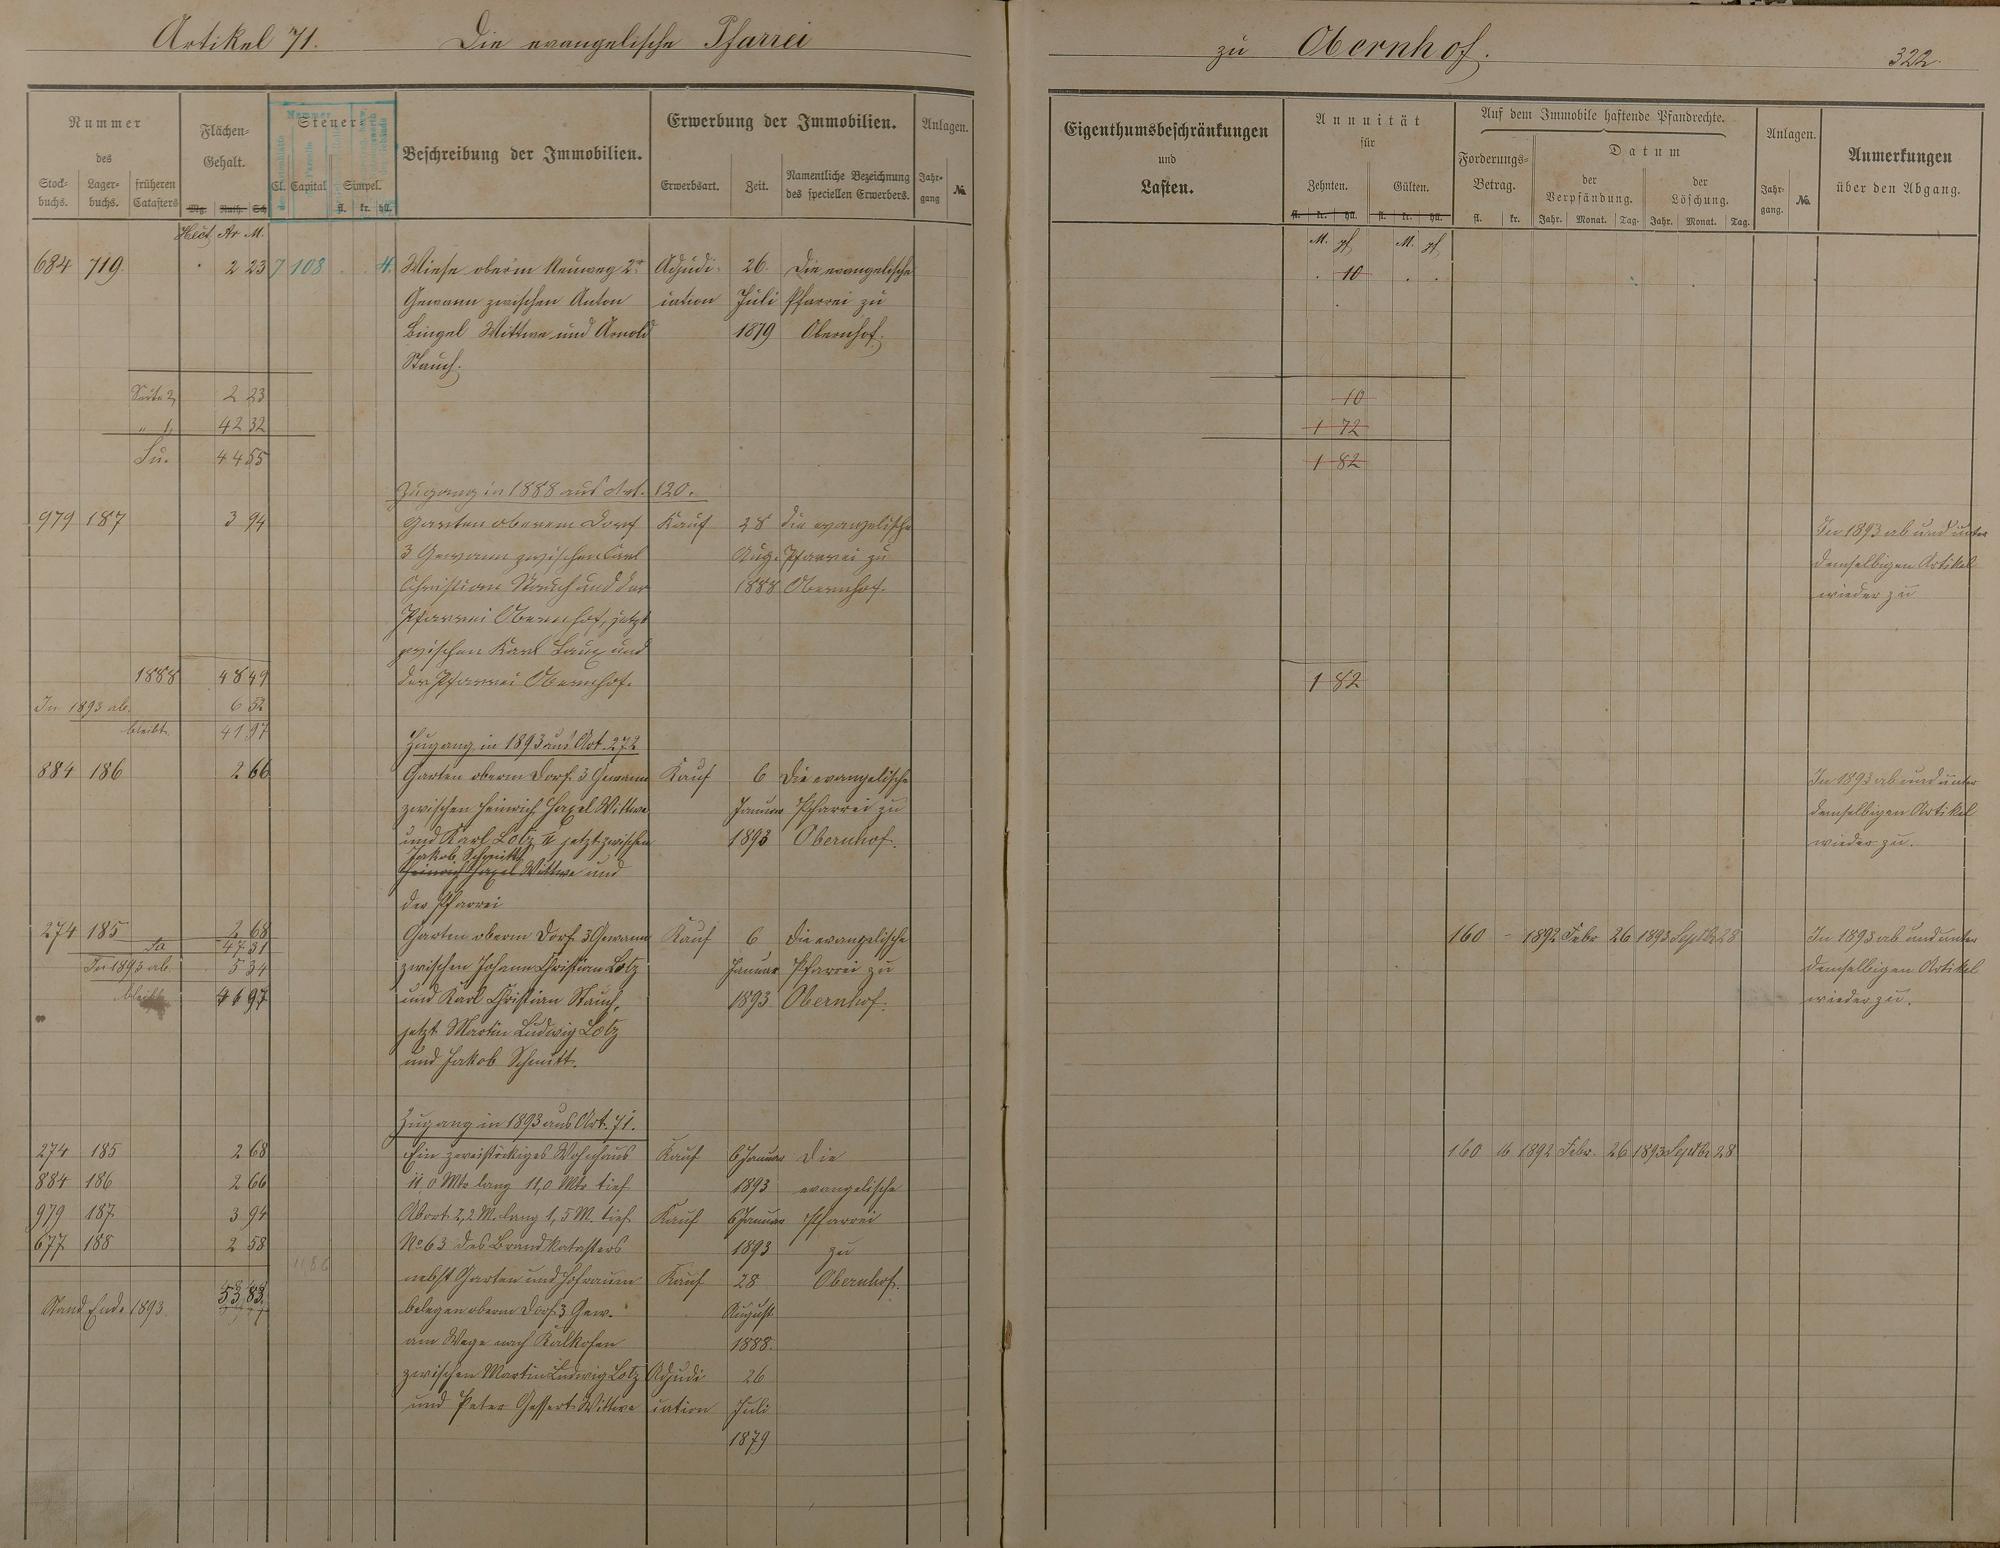 Artikel 71. Die evangelische Pfarrei zu Obernhof. 322.
Nummer des
Stock-buchs. Lager-buchs. früheren Catasters
Flächen-Gehalt.
Mg. Ruth. Sch
Steuer-
Cl. Capital Simpel.
fl. kr. hll.
Beschreibung der Immobilien.
Erwerbung der Immobilien.
Erwerbsart. Zeit. Namentliche Bezeichnung des speciellen Erwerbers.
Anlagen.
Jahr-gang No.
Eigenthumsbeschränkungen
und
Lasten.
Annuität
für
Zehnten. Gülten.
fl. kr. hll. fl. kr. hll.
Auf dem Immobile haftende Pfandrechte.
Forderungs-Betrag.
fl. kr.
Datum
der Verpfändung. der Löschung.
Jahr. Monat. Tag. Jahr. Monat. Tag.
Anlagen.
Jahr-gang. No.
Anmerkungen
über den Abgang.
Hect Ar M.
M. pf M. pf
684 719 2 23 7 108 4 Wiese oberm Neuweg 2r Adjudi- 26. Die evangelische 10
Gewann zwischen Anton ication Juli Pfarrei zu
Bingel Wittwe und Arnold 1879 Obernhof.
Stauch.
Seite 2, 2 23 10
" 1, 42 32 1 72
Su. 44 55 1 82
Zugang in 1888 aus Art. 120.
979 187 3 94 Garten oberem Dorf Kauf 28 die evangelische In 1893 ab und unter
3 Gewann zwischen Carl Aug. Pfarrei zu demselbigen Artikel
Christian Stauch und der 1888 Obernhof. wieder zu
Pfarrei Obernhof, jetzt
zwischen Karl Laux und
1888 48 49 der Pfarrei Obernhof. 1 82
In 1893 ab. 6 52
bleibt. 41 97
Zugang in 1893 aus Art. 272
884 186 2 66 Garten oberm Dorf 3 Gewann Kauf 6 Die evangelische In 1893 ab und unter
zwischen Heinrich Hazel Wittwe Januar Pfarrei zu demselbigen Artikel
und Karl Lotz II jetzt zwischen 1893 Obernhof. wieder zu.
Jakob Schmitt
Heinrich Hazel Wittwe und
der Pfarrei
274 185 2 68 Garten oberm Dorf 3 Gewann Kauf 6 Die evangelische 160 - 1892 Febr 26 1893 Septbr 28 In 1893 ab und unter
Sa 47 31
In 1893 ab. 5 34 zwischen Johann Christian Lotz Januar Pfarrei zu demselbigen Artikel
bleibt 41 97 und Karl Christian Stauch, 1893 Obernhof. wieder zu.
jetzt Martin Ludwig Lotz
und Jakob Schmitt.
Zugang in 1893 aus Art. 71.
274 185 2 68 Ein zweistöckiges Wohnhaus Kauf 6 Januar Die 160 M 1892 Febr. 26 1893 Septbr 28
884 186 2 66 11,0 Mtr lang 11,0 Mtr tief 1893 evangelische
979 187 3 94 Abort 2,2 M. lang 1,5 M. tief Kauf 6 Januar Pfarrei
677 188 2 58 No 63 des Brandkatasters 1893 zu
nebst Garten und Hofraum Kauf 28 Obernhof.
Stand Ende 1893. 53 83 belegen oberm Dorf 3 Gew. August
am Wege nach Kalkofen 1888.
zwischen Martin Ludwig Lotz Adjudi 26
und Peter Gessert Wittwe ication Juli
1879